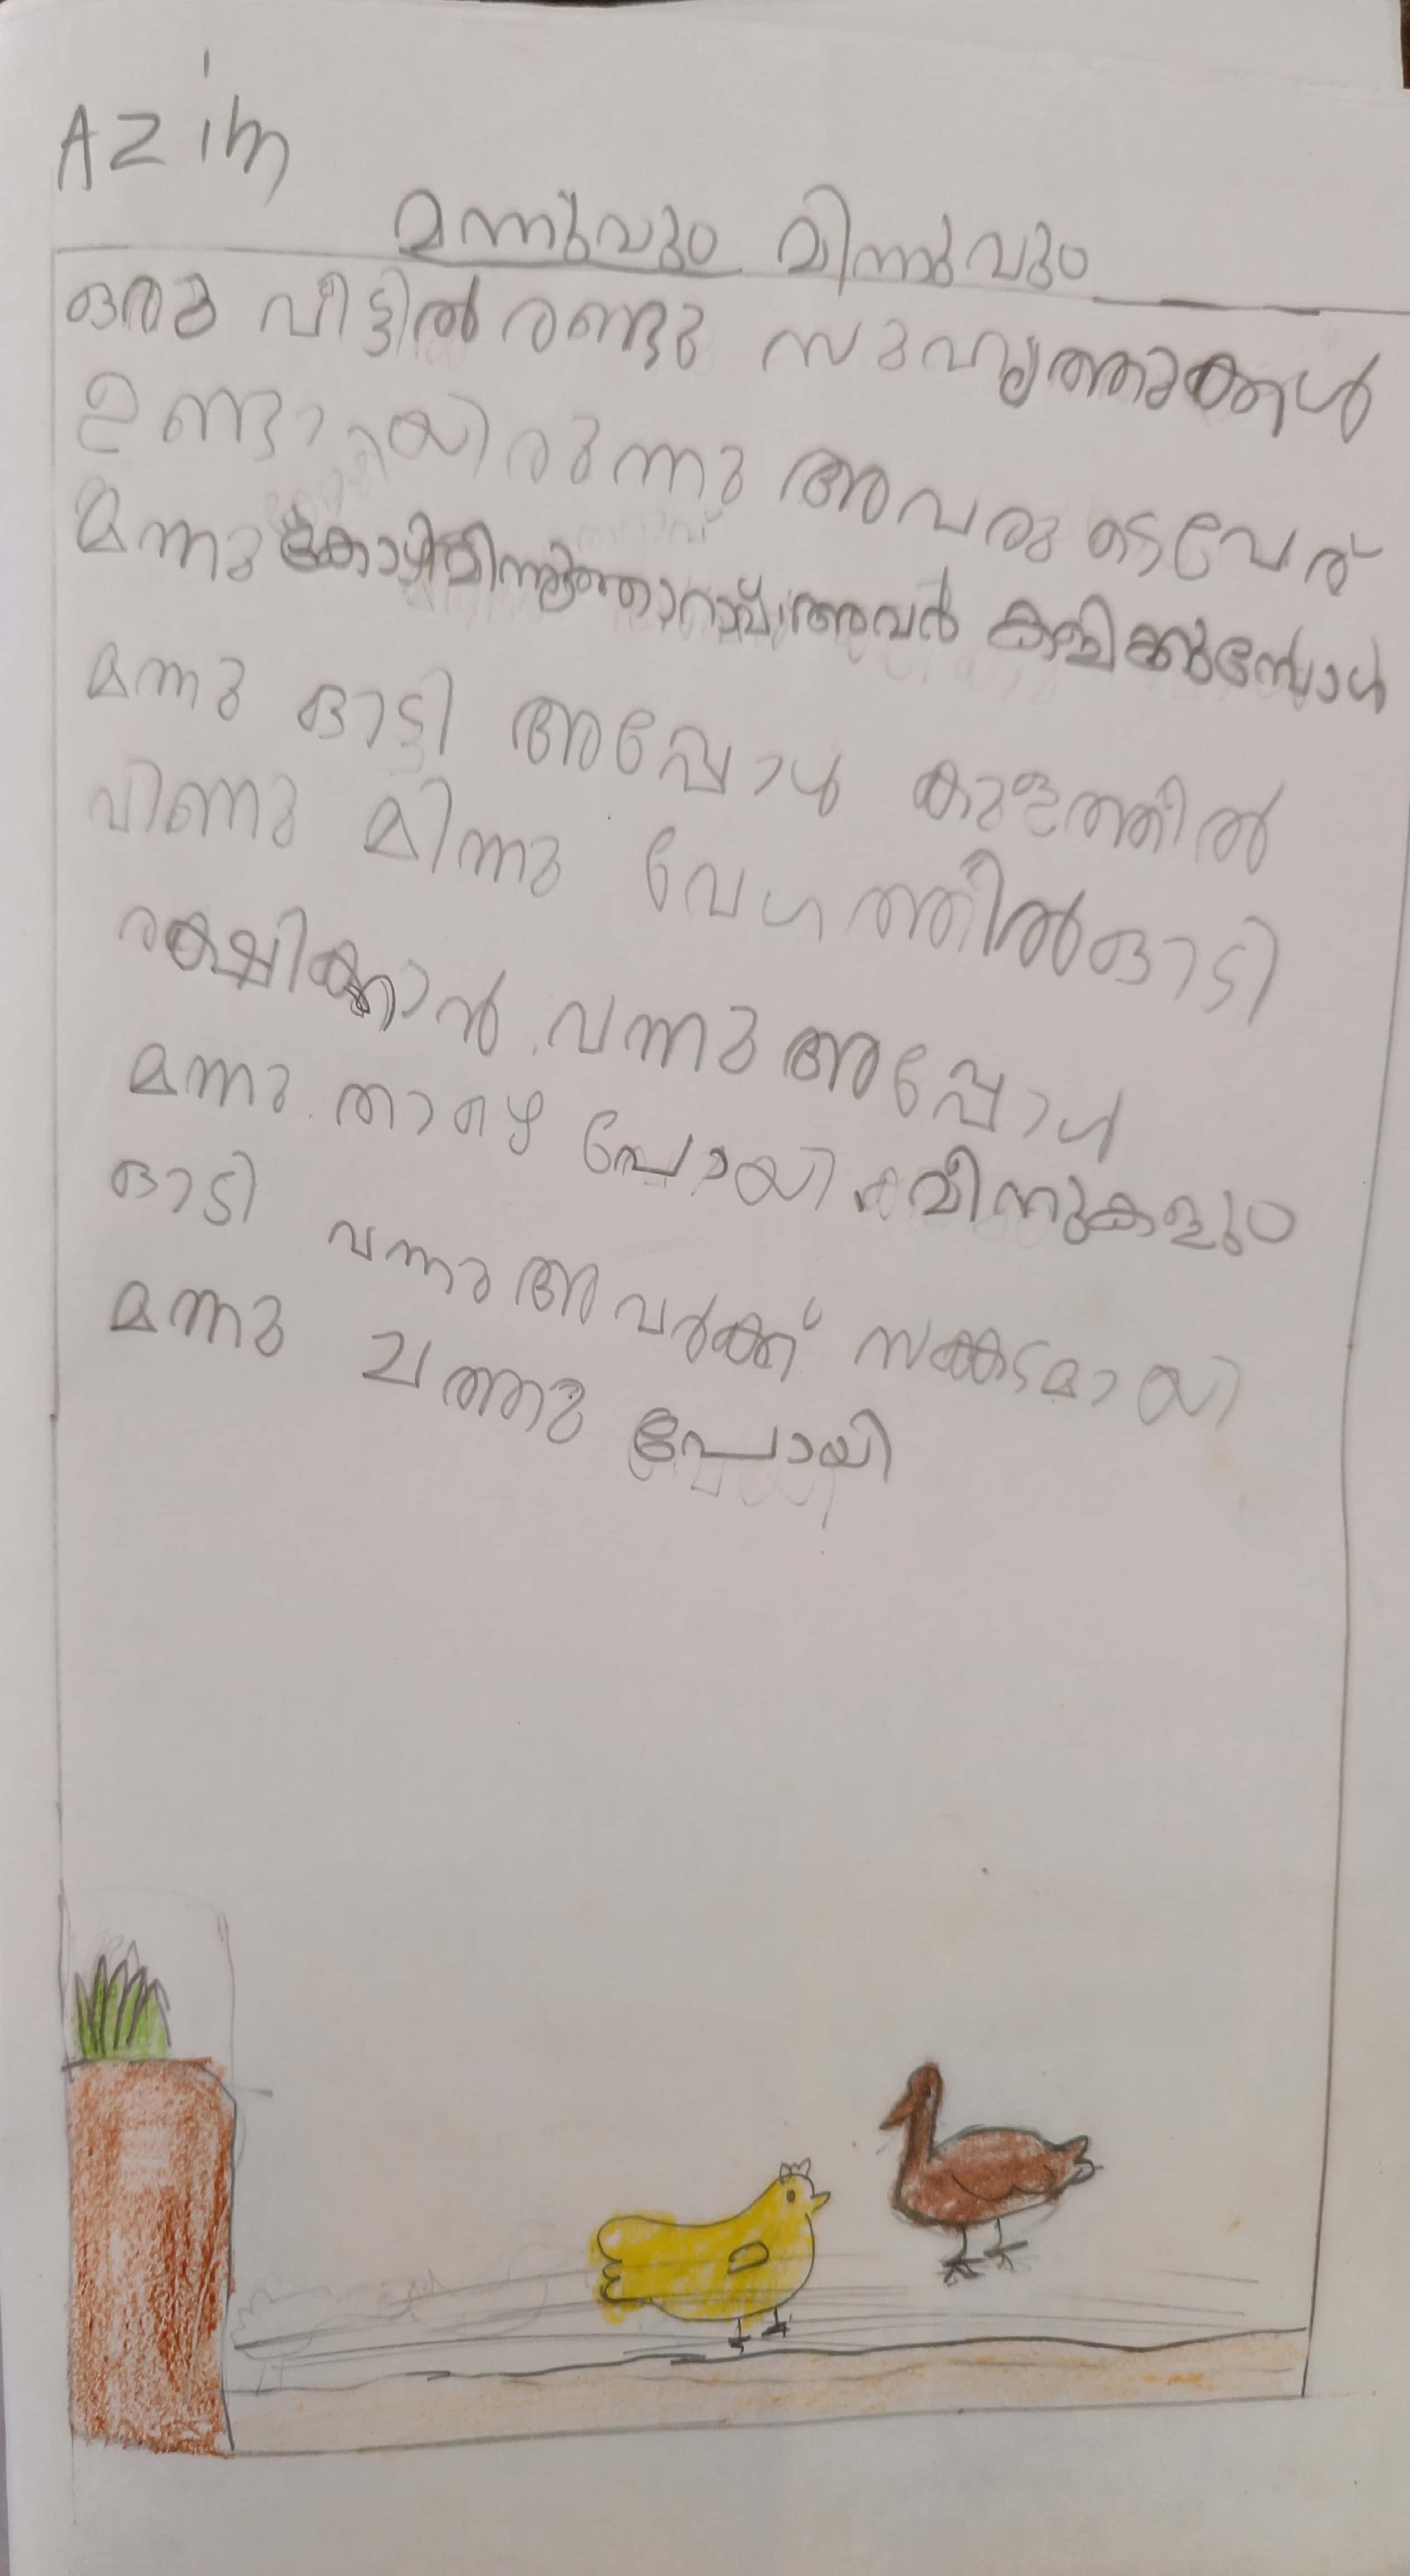 Azim
മന്നുവും മിന്നുവും
ഒരു വീട്ടിൽ രണ്ടു സുഹൃത്തുക്കൾ
ഉണ്ടായിരുന്നു അവരുടെ പേര്
മന്നു കോഴി മിന്നു താറാവ് അവർ കളിക്കുമ്പോൾ
മന്നു ഓടി അപ്പോൾ കുളത്തിൽ
വീണു മിന്നു വേഗത്തിൽ ഓടി
രക്ഷിക്കാൻ വന്നു അപ്പോൾ
മന്നു താഴെ പോയി മീനുകളും
ഓടി വന്നു അവർക്ക് സങ്കടമായി
മന്നു ചത്തു പോയി